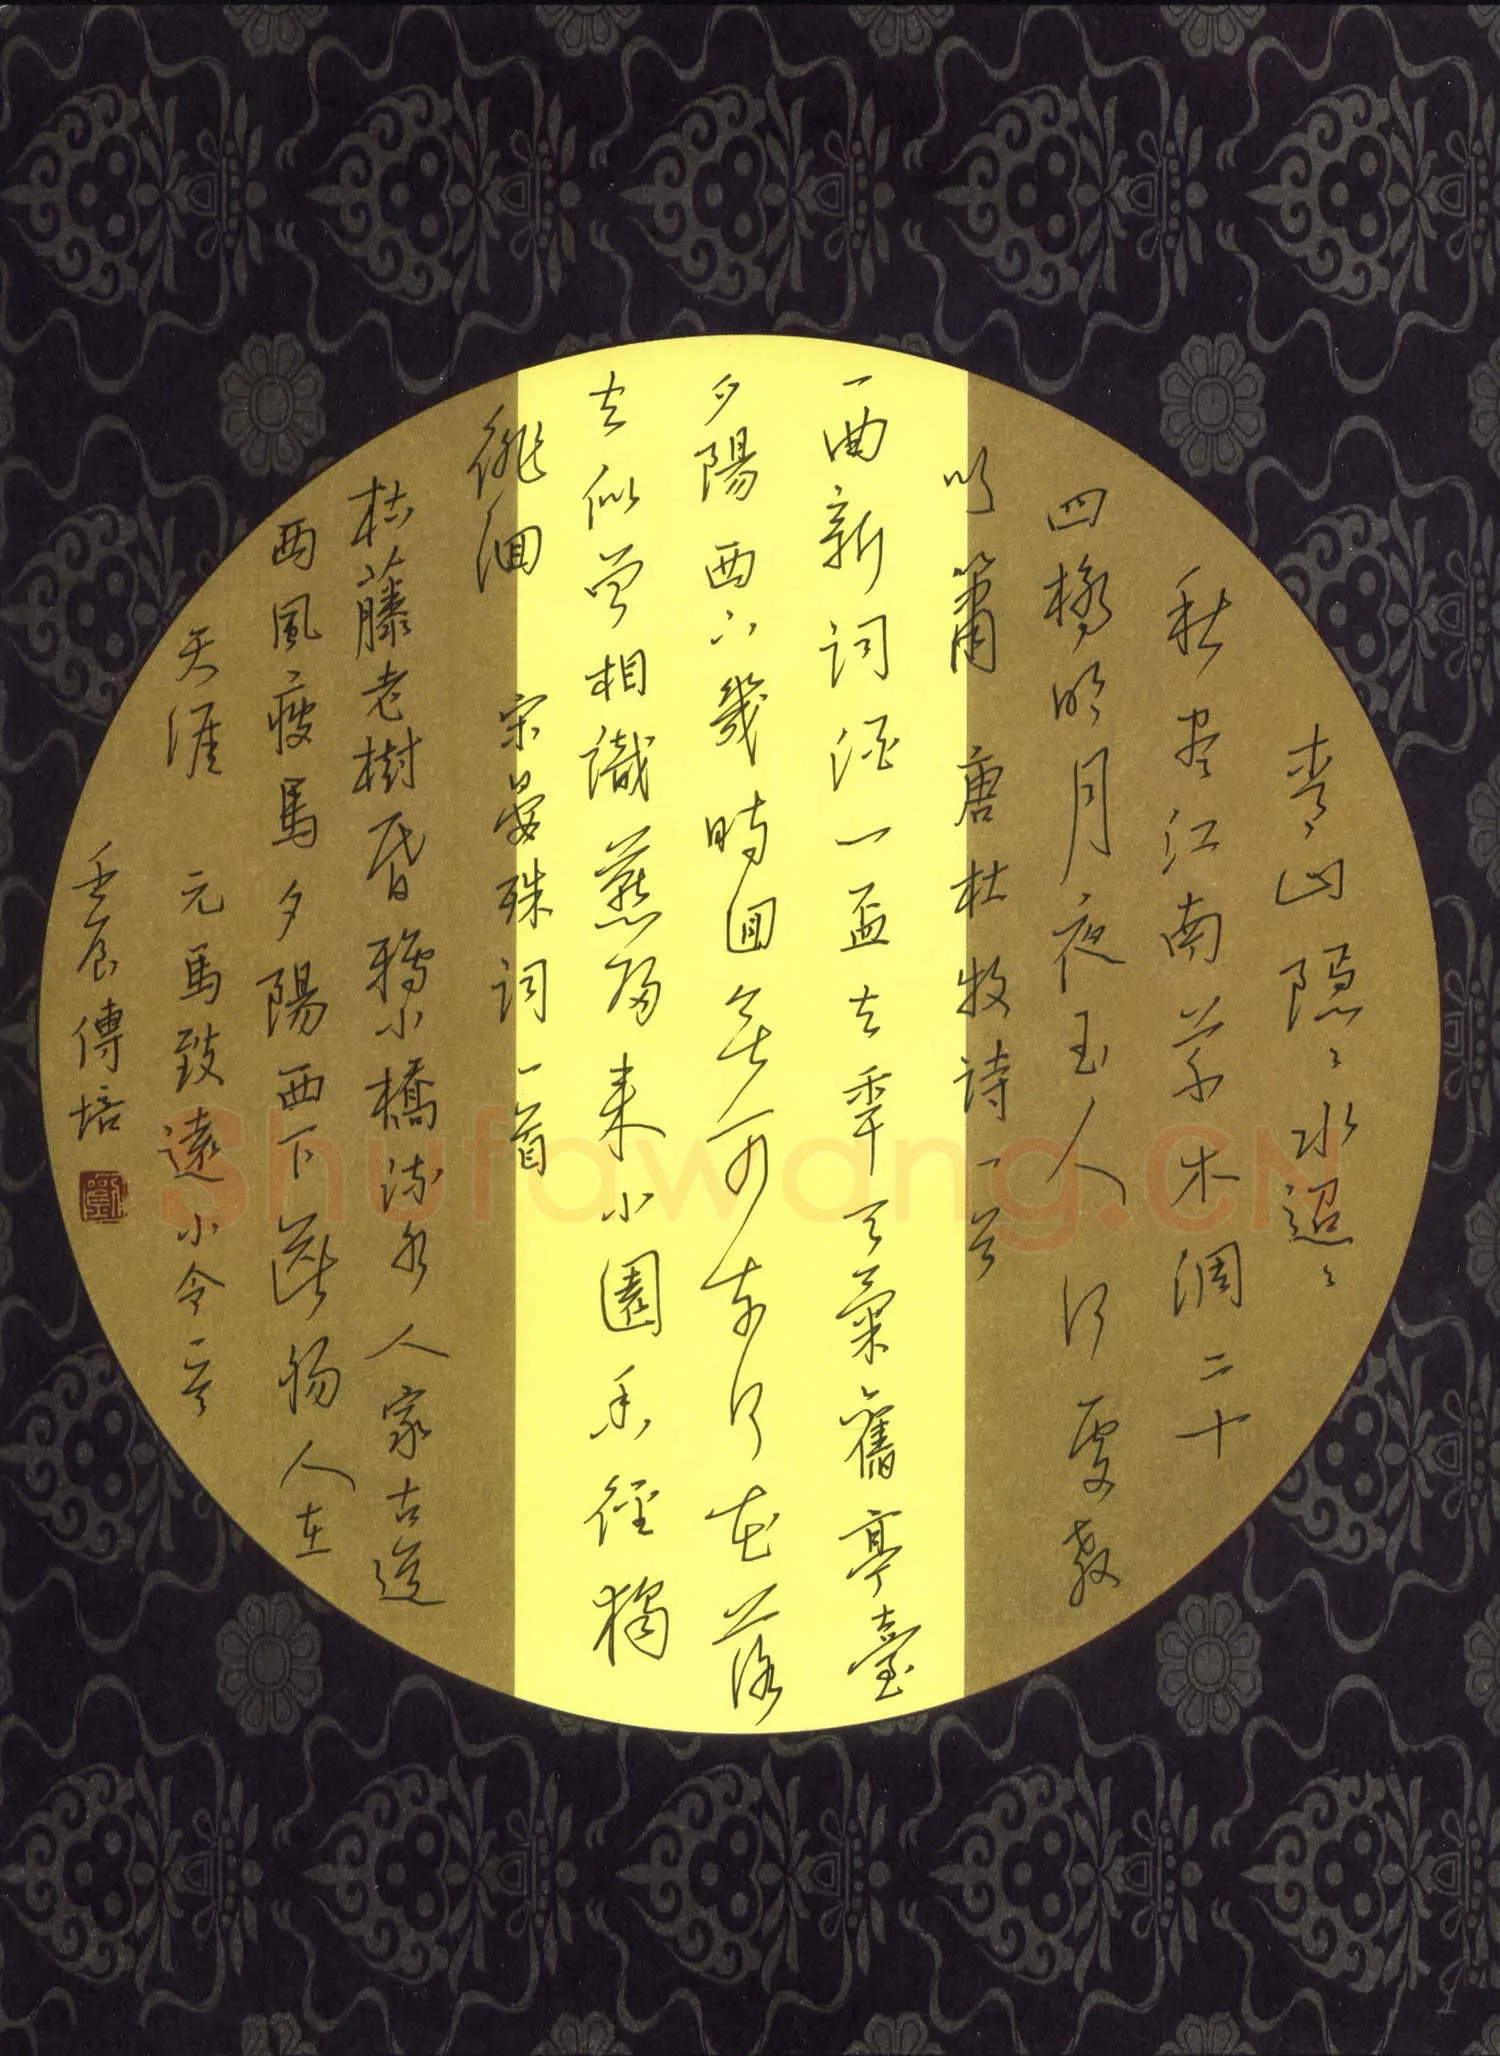 青山隱々水迢々
秋盡江南草木凋二十
四橋明月夜玉人何處教
吹簫 唐杜牧詩一首
一曲新詞酒一盃去年天氣舊亭臺
夕陽西下幾時回無可奈何花落
去似曾相識燕歸來小園香徑獨
徘徊 宋晏殊詞一首
枯藤老樹昏鴉小橋流水人家古道
西風瘦馬夕陽西下斷腸人在
天涯 元馬致遠小令一首
壬辰傳培
Shufawang.CN